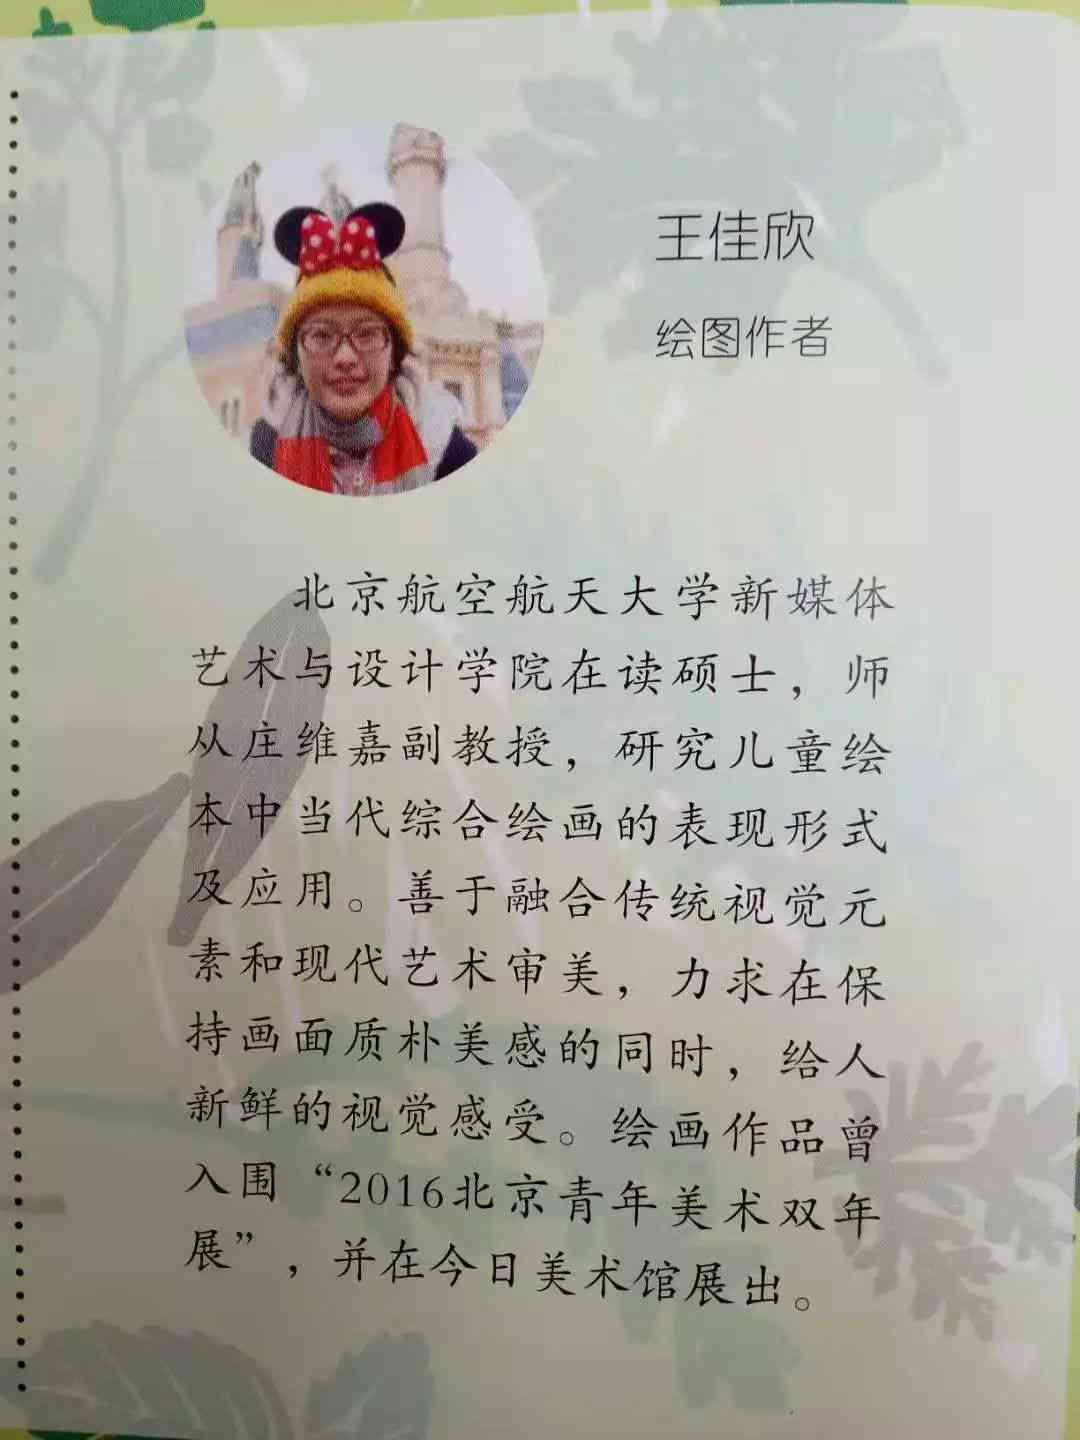 王佳欣
绘图作者
北京航空航天大学新媒体
艺术与设计学院在读硕士，师
从庄维嘉副教授，研究儿童绘
本中当代综合绘画的表现形式
及应用。善于融合传统视觉元
素和现代艺术审美，力求在保
持画面质朴美感的同时，给人
新鲜的视觉感受。绘画作品曾
入围“2016北京青年美术双年
展”，并在今日美术馆展出。